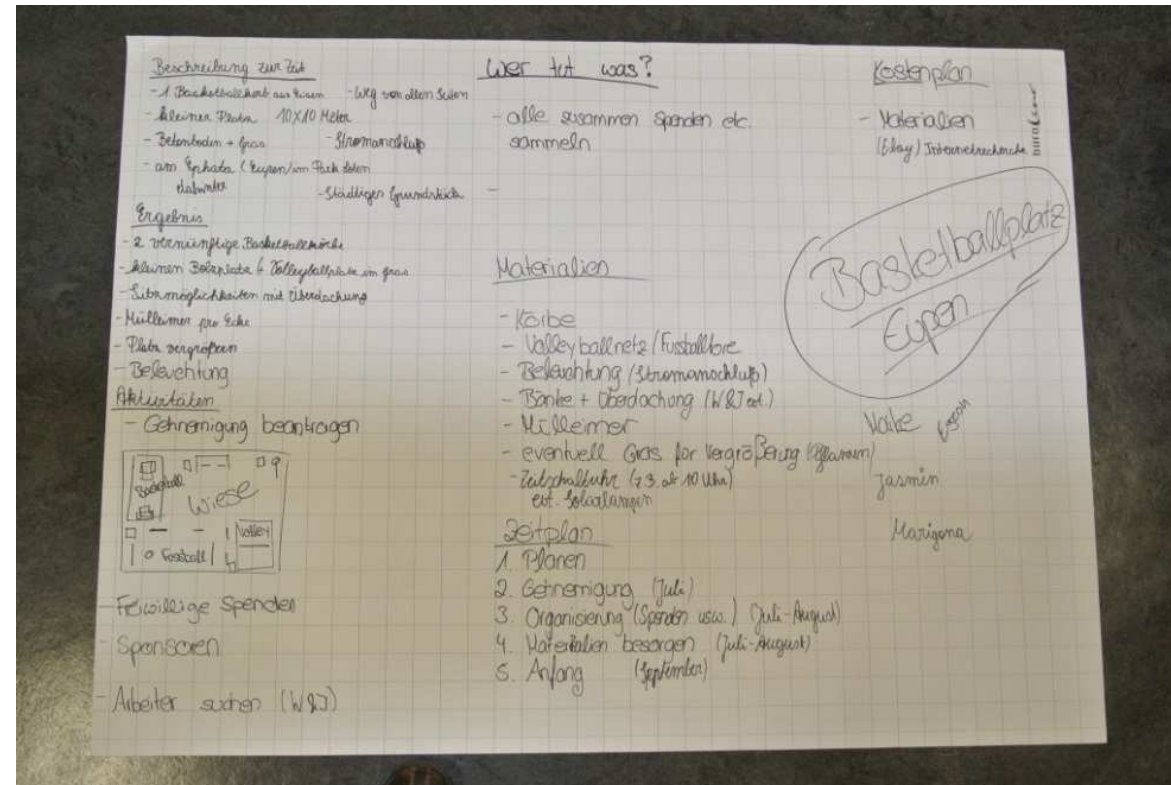 Beschreibung zur Zeit
- 1 Basketballkorb aus Eisen - Weg von allen Seiten
- kleiner Platz 10X10 Meter
- Betonboden + Gras - Stromanschluß
- am Ephata (Eupen/im Park
dahinter - Städtiges Grundstück
Ergebnis
- 2 vernünftige Basketballkörbe
- kleinen Bolzplatz + Volleyballplatz im Gras
- Sitzmöglichkeiten mit Überdachung
- Mülleimer pro Ecke
- Platz vergrößern
- Beleuchtung
Aktivitäten
- Gehnemigung beantragen
Basketball
Wiese
Volley
Fussball
- Freiwillige Spenden
- Sponsoren
- Arbeiter suchen (W&J)
Wer tut was?
- alle zusammen Spenden etc.
sammeln
-
Materialien
- Körbe
- Volleyballnetz/Fussballtore
- Beleuchtung (Stromanschluß)
- Bänke + Überdachung (W&J)
- Mülleimer
- eventuell Gras für Vergrößerung
- Zeitschaltuhr (z.B. ab 10 Uhr)
evt. Solarlampen
Zeitplan
1. Planen
2. Gehnemigung (Juli)
3. Organisierung (Spenden usw.) (Juli-August)
4. Materialien besorgen (Juli-August)
5. Anfang (September)
Kostenplan
- Materialien
(Ebay) Internetrecherche
Basketballplatz
Eupen
Maike
Jasmin
Marigona